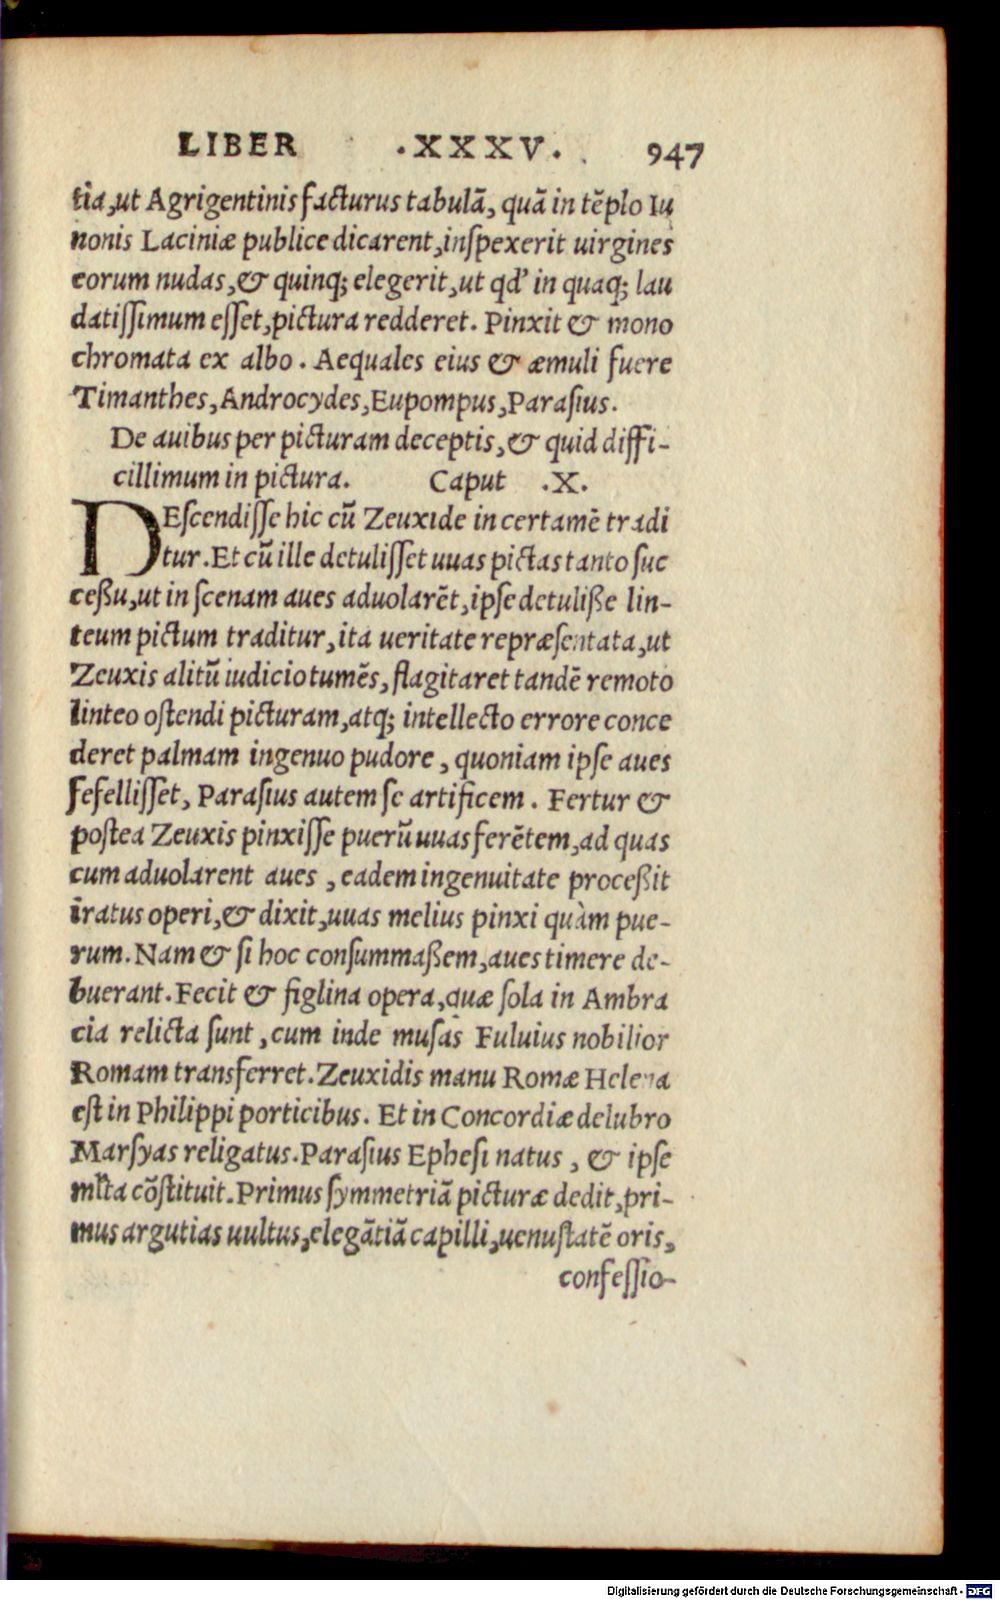 LIBER .XXXV. 947
tia,ut Agrigentinis facturus tabulā, quā in tēplo Iu
nonis Laciniæ publice dicarent,inſpexerit uirgines
eorum nudas,& quinq; elegerit,ut qd' in quaq; lau
datiſſimum eſſet,pictura redderet. Pinxit & mono
chromata ex albo. Aequales eius & æmuli fuere
Timanthes,Androcydes,Eupompus,Paraſius.
De auibus per picturam deceptis,& quid diffi-
cillimum in pictura. Caput .X.
DEſcendiſſe hic cū Zeuxide in certamē tradi
tur.Et cū ille detuliſſet uuas pictas tanto ſuc
ceßu,ut in ſcenam aues aduolarēt,ipſe detuliße lin-
teum pictum traditur,ita ueritate repræſentata,ut
Zeuxis alitū iudicio tumēs,flagitaret tandē remoto
linteo oſtendi picturam,atq; intellecto errore conce
deret palmam ingenuo pudore, quoniam ipſe aues
fefelliſſet, Paraſius autem ſe artificem. Fertur &
poſtea Zeuxis pinxiſſe puerū uuas ferētem,ad quas
cum aduolarent aues, eadem ingenuitate proceßit
iratus operi,& dixit,uuas melius pinxi quàm pue-
rum. Nam & ſi hoc conſummaßem,aues timere de-
buerant. Fecit & figlina opera,quæ ſola in Ambra
cia relicta ſunt, cum inde muſas Fuluius nobilior
Romam transferret. Zeuxidis manu Romæ Helena
eſt in Philippi porticibus. Et in Concordiæ delubro
Marſyas religatus. Paraſius Epheſi natus, & ipſe
ml̄ta cōſtituit. Primus ſymmetriā picturæ dedit,pri-
mus argutias uultus,elegātiā capilli,uenuſtatē oris,
confeſſio-
Digitalisierung gefördert durch die Deutsche Forschungsgemeinschaft - DFG